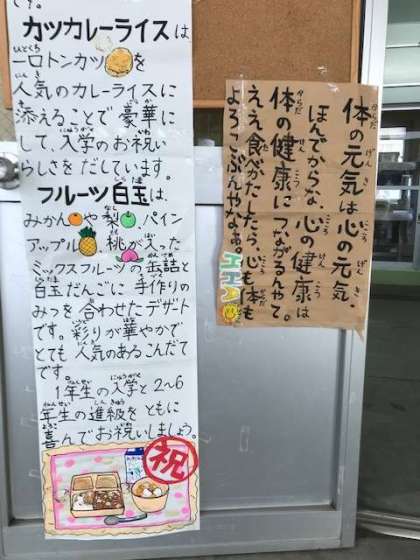 です。
カツカレーライスは、
一口トンカツを
人気のカレーライスに
添えることで豪華に
して、入学のお祝い
らしさをだしています。
フルーツ白玉は、
みかんや梨、パイン
アップル、桃が入った
ミックスフルーツの缶詰と
白玉だんごに手作りの
みつを合わせたデザート
です。彩りが華やかで
とても人気のあるこんだて
です。
1年生の入学と2~6
年生の進級をともに
喜んでお祝いしましょう。
祝
体の元気は心の元気。
ほんでからな、心の健康は
体の健康につながるんやて。
ええ食べかたしたら、心も体も
よろこぶんやなぁ。